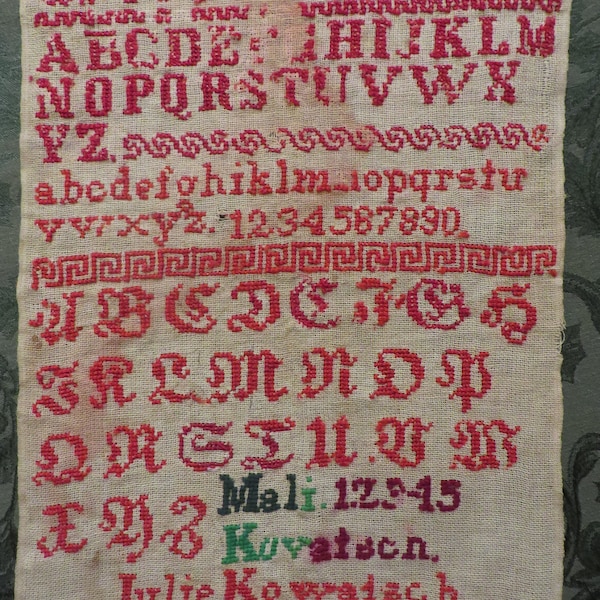 ABCDEFGHIJKLM
NOPQRSTUVWX
YZ.
abcdefghiklmnopqrstu
vwxyz. 1234567890.
A B C D E F G H
J K L M N O P
Q R S T U V W
X Y Z Mali.
Kovatsch.
Julie Kowatsch